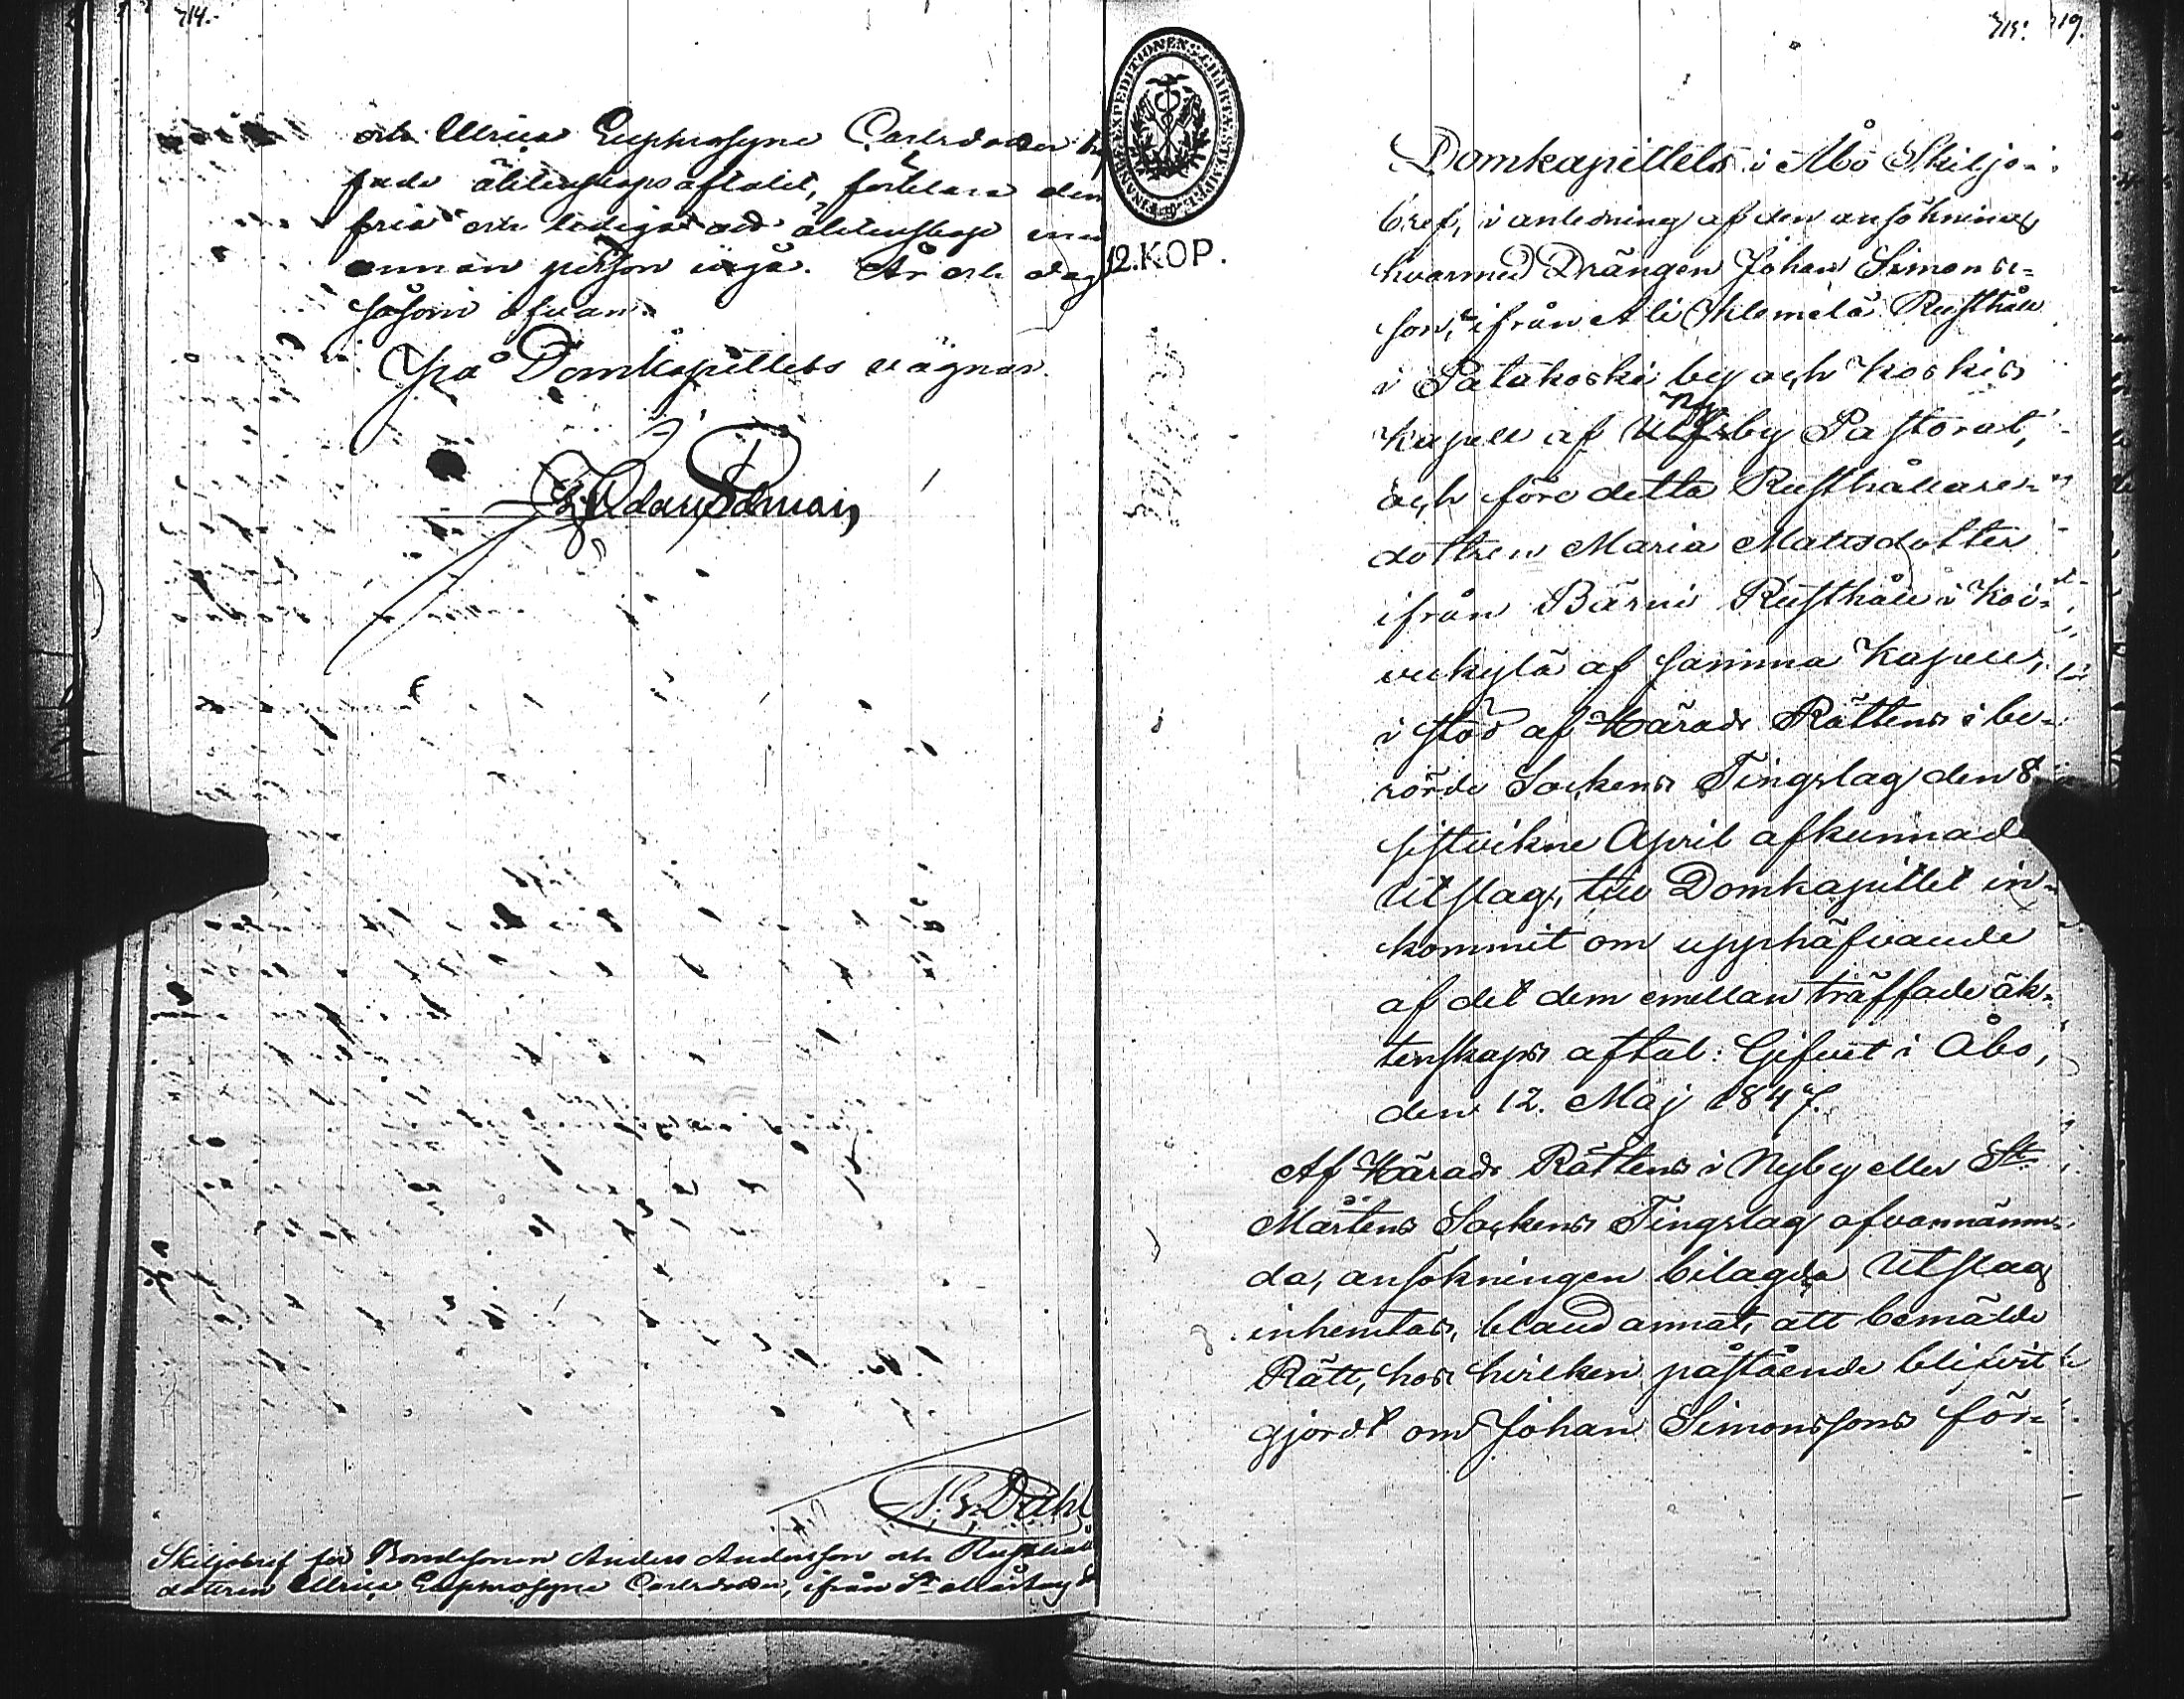 714.
och Ullrica Euphrosyne Carlsdotter
fade äktenskapsaftalet, förklara dem
fria och lediga att äktenskap med
annan person ingå. År och dag
såsom ofvan.
På Domkapitlets vägnar
Skiljobref för Bondesonen Anders Andersson och
dottren Ullrica Euphrosyne Carlsdotter, ifrån St Mårtens
FINANS EXPEDITIONENS CHARTÆ STÄMPEL
12. KOP.
715. 719.
Domkapitlets i Åbo Skiljo-
bref, i anledning af den ansökning,
hvarmed Drängen Johan Simons-
son, ifrån Ali Klemelä Rusthåll
i Patakoski by och Koskis
Kapell af Ny
Ulfsby Pastorat,
och före detta Rusthållare-
dottren Maria Matsdotter
ifrån Bärni Rusthåll i Koi-
vukylä af samma Kapell,
i stöd af Härads Rättens i be-
rörde Sockens Tingslag den 8
sistvikne April afkunnade
Utslag, till Domkapitlet in-
kommit om upphäfvande
af det dem emellan träffade äk-
tenskaps aftal: Gifvet i Åbo,
den 12. Maj 1847.
Af Härads Rättens i Nyby eller St
Mårtens Sockens Tingslag ofvannämn-
da, ansökningen bilagda Utslag
inhemtas, bland annat, att bemälde
Rätt, hos hvilken påstående blifvit
gjordt om Johan Simonssons för-
N. G. Dahl